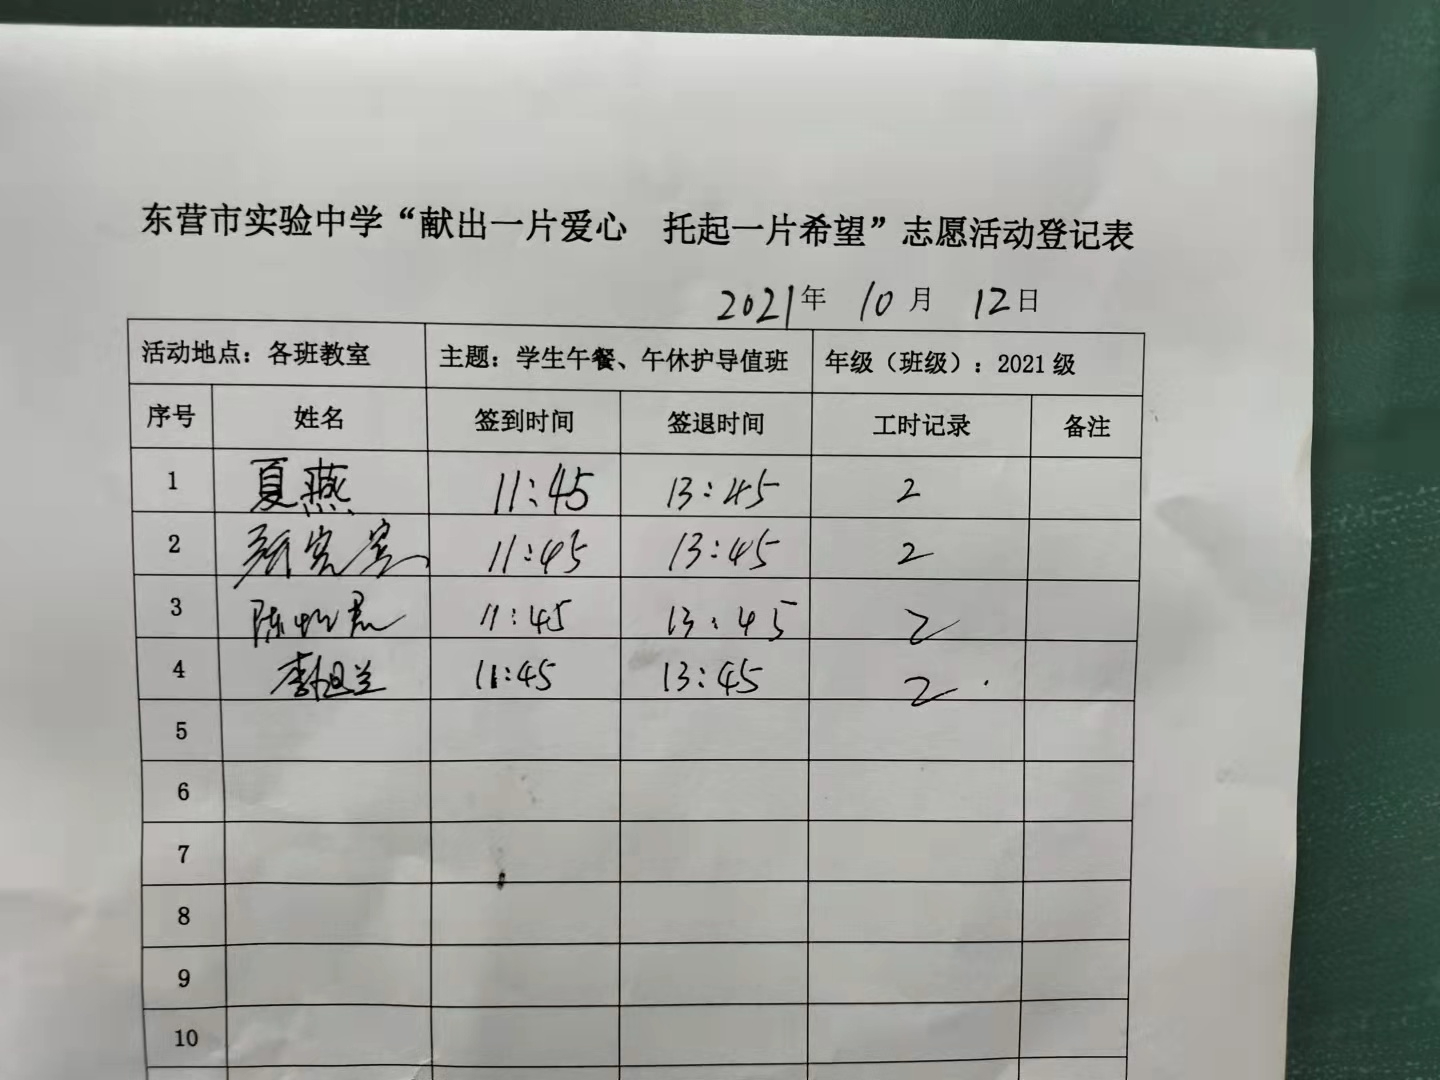 东营市实验中学“献出一片爱心 托起一片希望”志愿活动登记表
2021年 10月 12日
活动地点：各班教室 主题：学生午餐、午休护导值班 年级（班级）：2021级
序号 姓名 签到时间 签退时间 工时记录 备注
1 夏燕 11:45 13:45 2
2 11:45 13:45 2
3 陈 君 11:45 13:45 2
4 李 兰 11:45 13:45 2
5
6
7
8
9
10